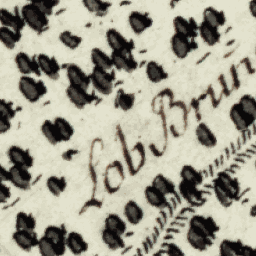 Lob Brun